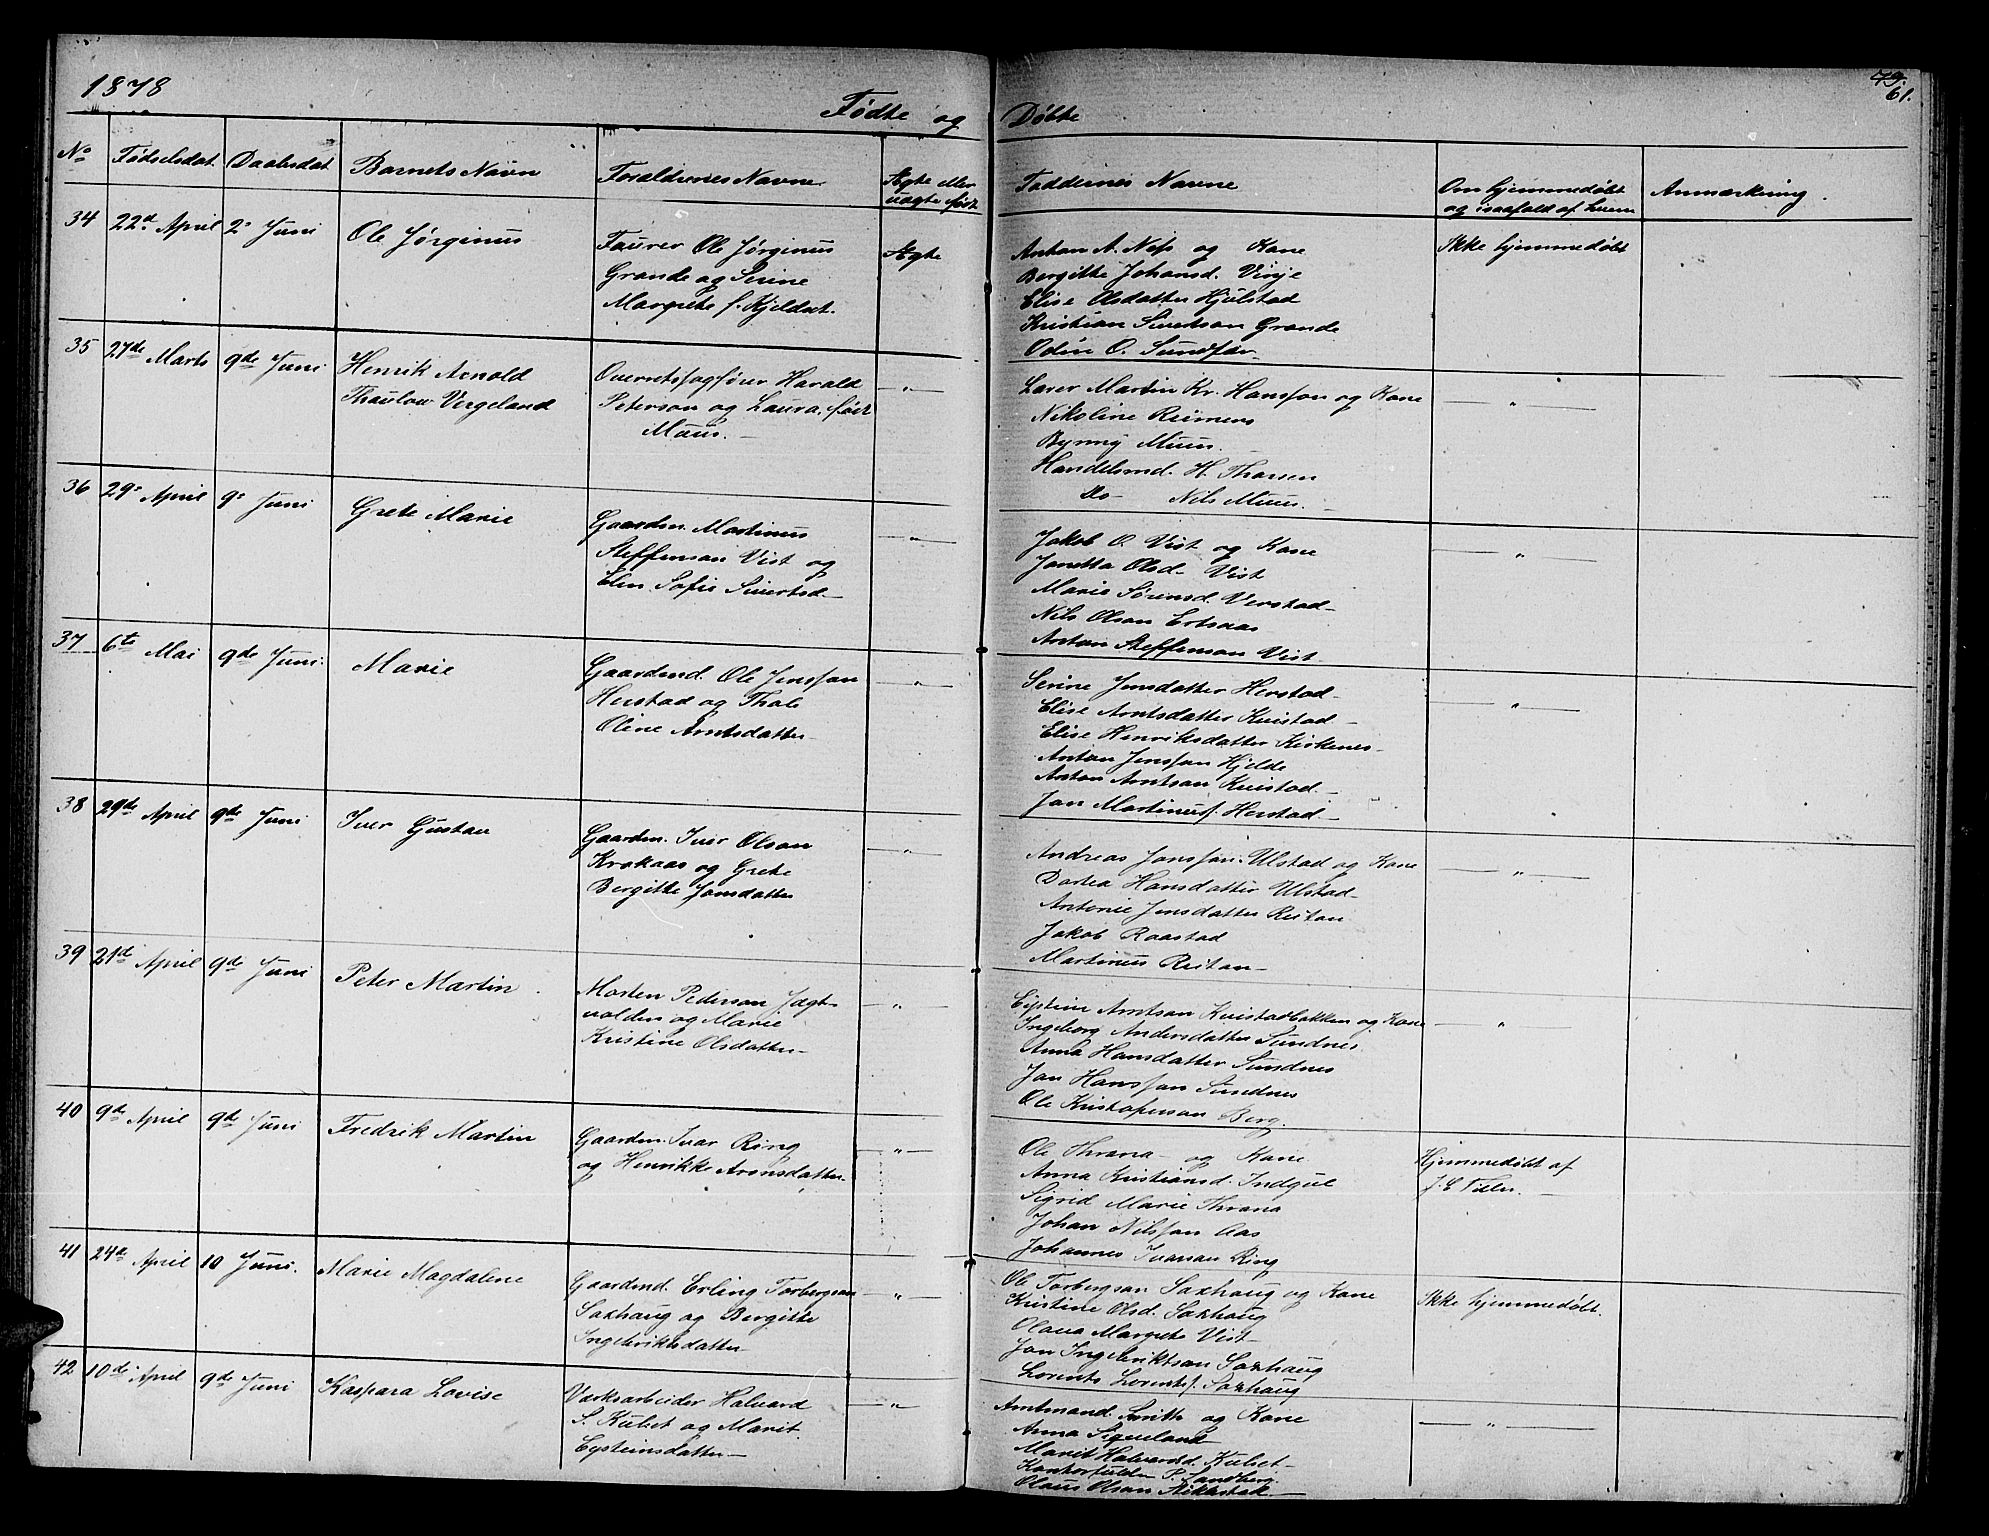 1878
Fødte og Døbte
79.
61.
No Fødselsdat. Daabsdat Barnets Navn Forældrenes Navne Ægte eller uægte født Faddernes Navne Om hjemmedøbt og isaafald af hvem Anmærkning.
34 22d April 2' Juni Ole Jørginus
Faurer Ole Jørginus
Grande og Serine
Margrete f. Kjeldset.
Ægte
Anton A. Nes og Kone
Bergitte Johansd. Vinje
Elise Olsdatter Hjulstad
Kristian Sivertsan Grande
Odin O. Sundfær
Ikke hjemmedøbt
35 27de Marts 9de Juni Henrik Arnold
Thaulow Vergeland
Overretssagfører Harald
Peterson og Laura, født
Muus.
— " —
Laver Martin Kr. Hansson og Kone
Nikoline Reimers
Bynny Muus.
Handelsmd. H. Thorsen
Do Nils Muus.
— " —
36 29' April 9' Juni Grete Marie
Gaardm. Martinus
Steffensan Vist og
Elen Sofie Sivertsd.
— " —
Jakob O. Vist og Kone
Janetta Olsd. Vist
Marie Sørensd. Verstad
Nils Olsan Ertsaas
Anton Steffensan Vist
— " —
37 6te Mai 9de Juni. Marie
Gaardmd. Ole Jenssan
Herstad og Thale
Oline Arntsdatter
— " —
Serine Jensdatter Herstad
Elise Arntsdatter Kvistad
Elise Henriksdatter Kirkenes
Anton Jenssan Hjelde
Anton Arntsan Kvistad
Jan Martinuss. Herstad
— " —
38 29de April 9de Juni Iver Gustav
Gaardm. Iver Olsan
Krokaas og Grete
Bergitte Jansdatter
— " —
Andreas Janssan Ulstad og Kone
Dortea Hansdatter Ulstad
Antonie Jensdatter Reitan
Jakob Raastad
Martinus Reitan
— " —
39 21d April 9de Juni Peter Martin
Morten Pedersan Jægt-
volden og Marie
Kristine Olsdatter
— " —
Eystein Arntsan Kvistadbakken og Kone
Ingeborg Andersdatter Sundnes
Anna Hansdatter Sundnes
Jan Hanssan Sundnes
Ole Kristofersan Berg.
— " —
40 9d April 9d Juni Fredrik Martin
Gaardm. Ivar Ring
og Henrikke Aronsdatter
— " —
Ole Thrana og Kone
Anna Kristiansd. Indgul
Sigrid Marie Thrana
Johan Nilssan Aas
Johannes Ivarsan Ring
Hjemmedøbt af
J. E Tiller.
41 24d April 10 Juni. Marie Magdalene
Gaardmd. Erling Torbergsan
Saxhaug og Bergitte
Ingebriktsdatter
— " —
Ole Torbergsan Saxhaug og Kone
Kristine Olsd. Saxhaug
Olava Margrete Vist
Jan Ingebriktsan Saxhaug
Lorents Lorentss. Saxhaug
Ikke hjemmedøbt.
42 10de April 9de Juni Kaspara Lovise
Værksarbeider Halvard
S. Kulset og Marit
Eysteinsdatter
— " —
Amtmand. Smith og Kone
Anna Sigveland
Marit Halvardsd. Kulset
Kontorfuldm P. Sandberg.
Olaus Olsan Stiklestad
— " —